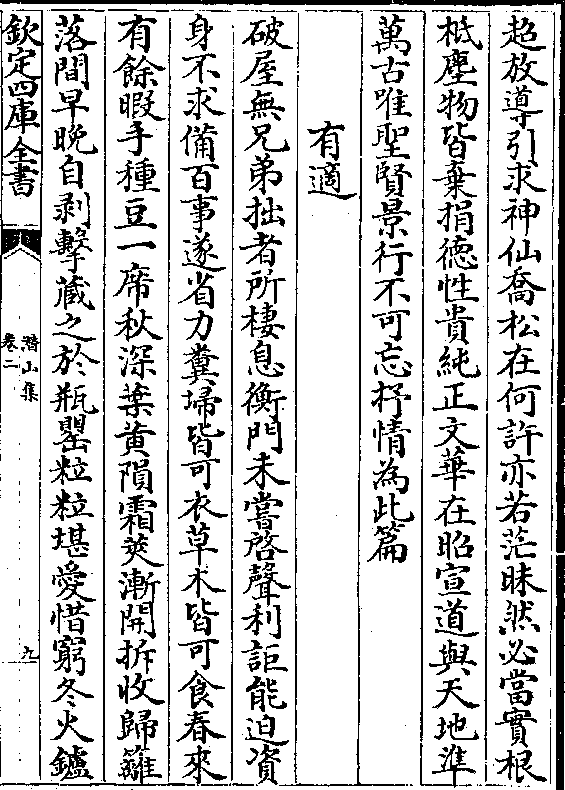 超放導引求神仙喬松在何許亦若茫昧然必當實根
柢塵物皆棄捐德性貴純正文華在昭宣道與天地準
萬古唯聖賢景行不可忘抒情為此篇
有適
破屋無兄弟拙者所棲息衡門未嘗啓聲利詎能迫資
身不求備百事遂省力糞埽皆可衣草木皆可食春來
有餘暇手種豆一席秋深葉黄隕霜莢漸開拆收歸籬
落間早晚自剥擊藏之於瓶罌粒粒堪愛惜窮冬火鑪
欽定四庫全書
潛山集
卷二
九